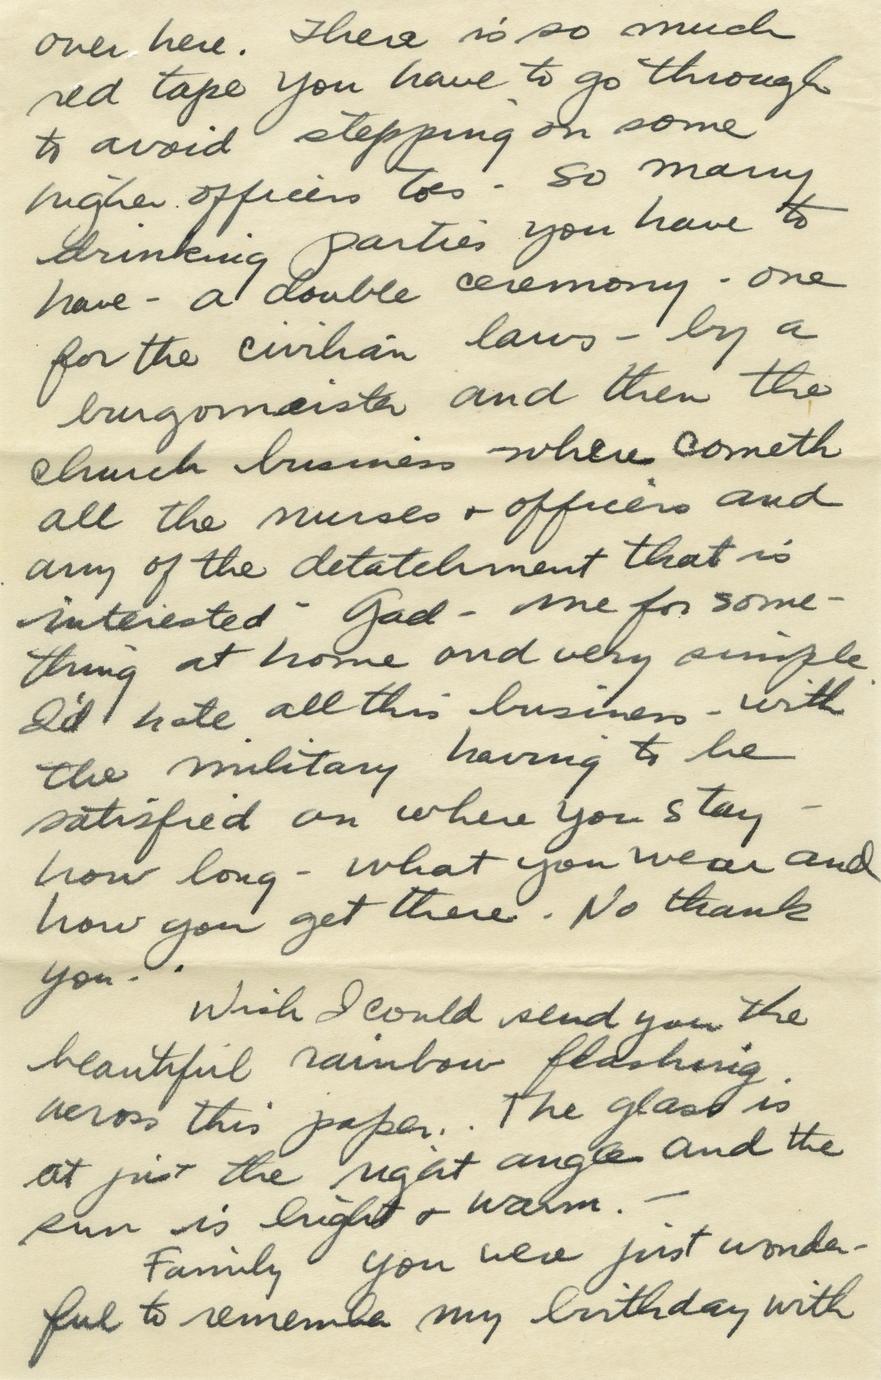 over here. There is so much
red tape you have to go through
to avoid stepping on some
higher officers toes - So many
drinking parties you have to
have - a double ceremony - one
for the civilian laws - by a
burgomeister and then the
church business where cometh
all the nurses + officers and
any of the detatchment that is
interested - Gad - me for some-
thing at home and very simple
I'd hate all this business - with
the military having to be
satisfied on where you stay -
how long - what you wear and
how you get there. No thank
you.
Wish I could send you the
beautiful rainbow flashing
across this paper. The glass is
at just the right angle and the
sun is bright + warm. -
Family you were just wonder-
ful to remember my birthday with